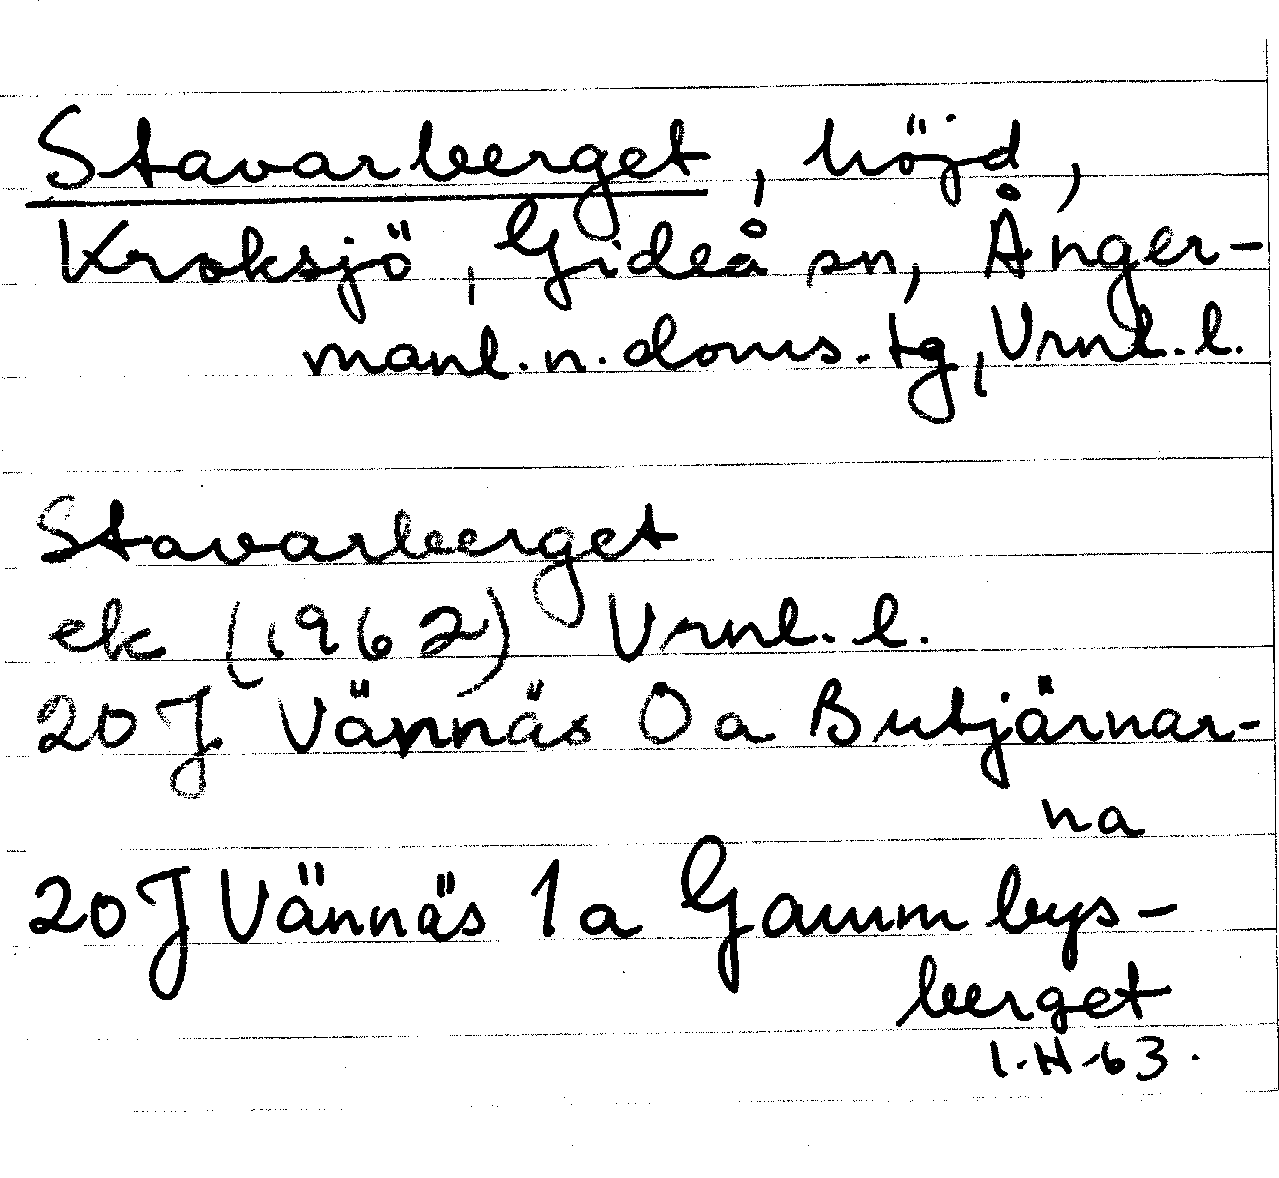 Stavarberget, höjd,
Kroksjö, Gideå sn, Ånger-
manl.n.doms.tg, Vrnl.l.
Stavarberget
ek (1962) Vrnl.l.
20 J Vännäs 0a Butjärnar-
na
20 J Vännäs 1a Gammbys-
berget
I.H-63.